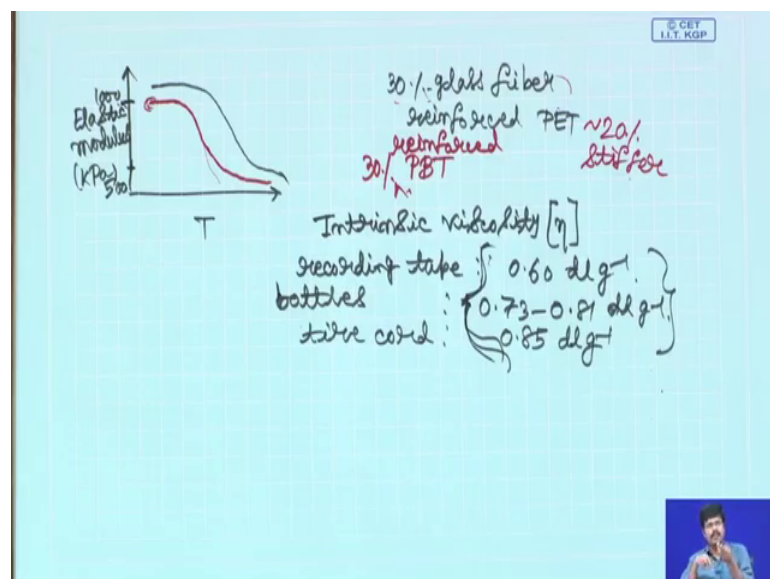 © CET
I.I.T. KGP
1000
Elastic
modulus
(KPa)
500
T
30% glass fiber
reinforced PET ~20%
stiffer
reinforced
30% PBT
Intrinsic viscosity [η]
recording tape : 0.60 dl g⁻¹
bottles : 0.73-0.81 dl g⁻¹
tire cord : 0.85 dl g⁻¹